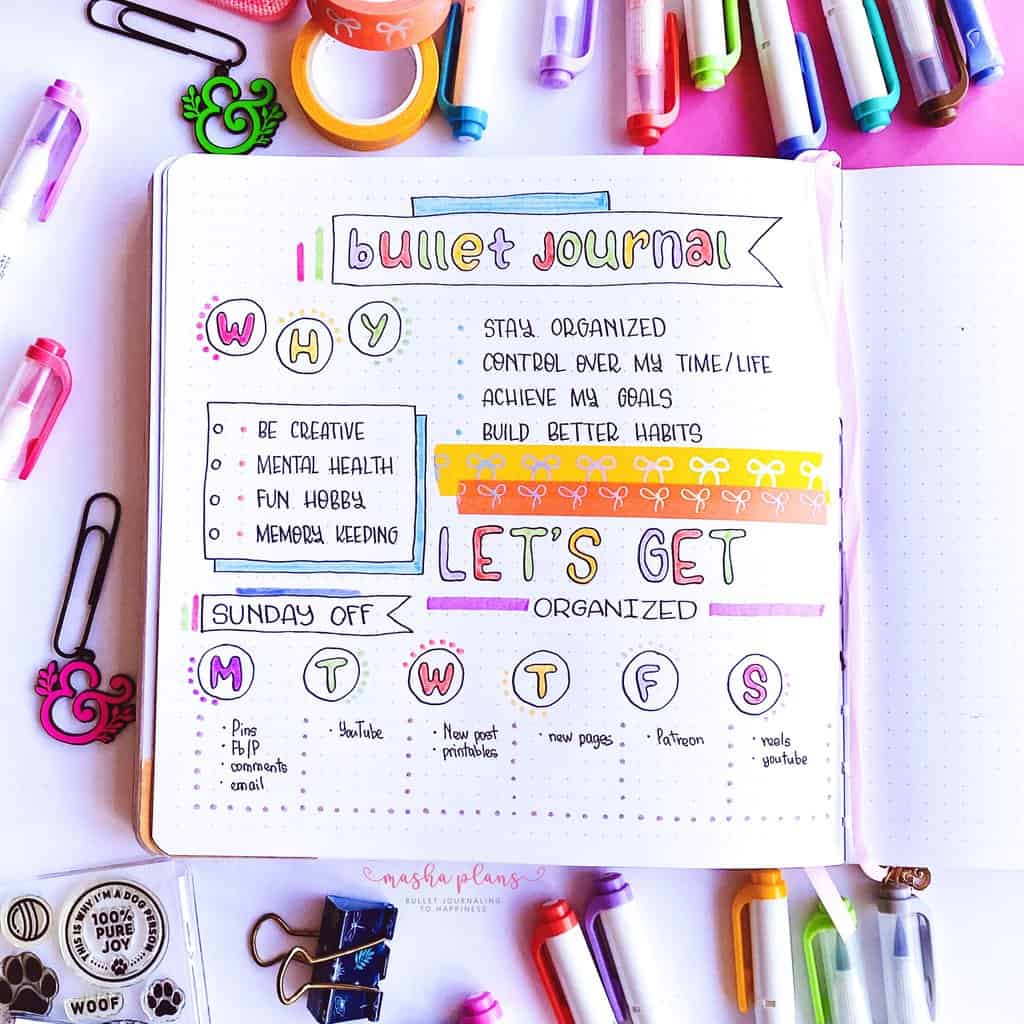 bullet journal
WHY
STAY ORGANIZED
CONTROL OVER MY TIME/LIFE
ACHIEVE MY GOALS
BUILD BETTER HABITS
BE CREATIVE
MENTAL HEALTH
FUN HOBBY
MEMORY KEEPING
LET'S GET
ORGANIZED
SUNDAY OFF
M T W T F S
· Pins
· Fb/P
· comments
· email
· YouTube
· New post
· printables
· new pages
· Patreon
· reels
· youtube
masha plans
BULLET JOURNALING
TO HAPPINESS
THIS IS WHY I'M A DOG PERSON
100%
PURE
JOY
WOOF